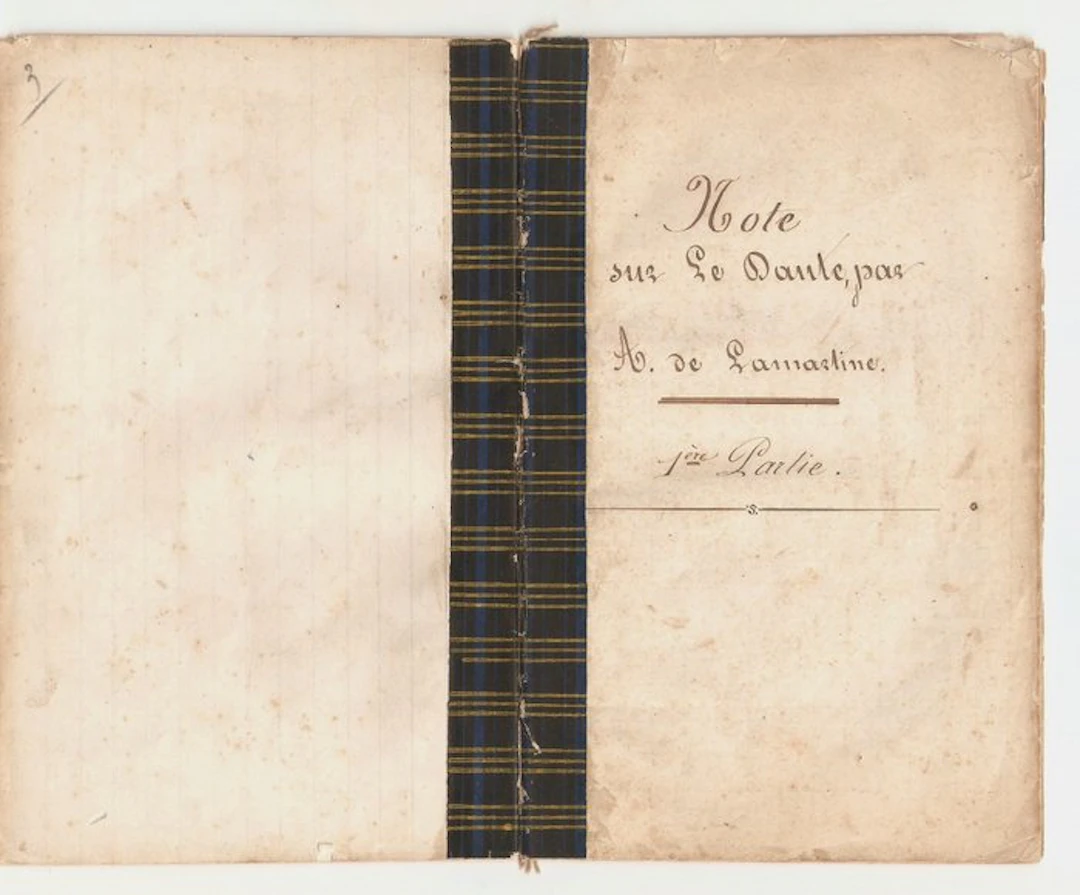 3
Note
sur Le Dante, par
A. de Lamartine.
1ère Partie.
S.